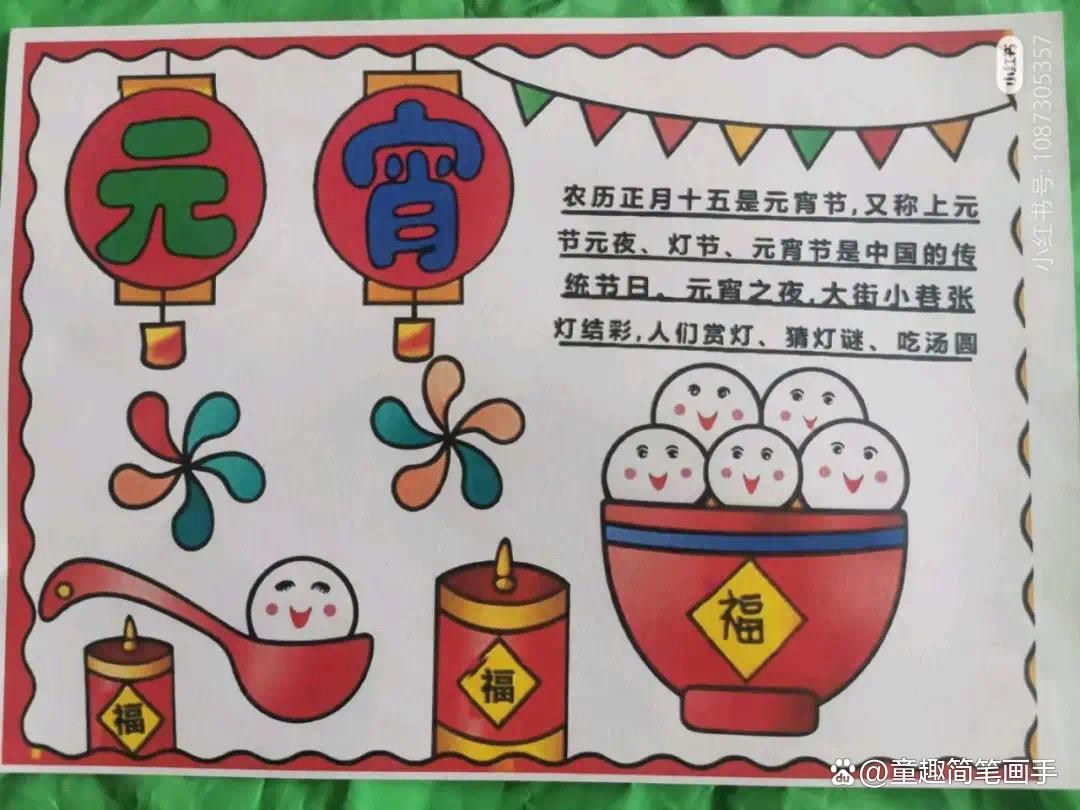 元 宵
农历正月十五是元宵节,又称上元
节元夜、灯节、元宵节是中国的传
统节日、元宵之夜,大街小巷张
灯结彩,人们赏灯、猜灯谜、吃汤圆
福
福
福
小红书
小红书号: 1087305357
du @童趣简笔画手